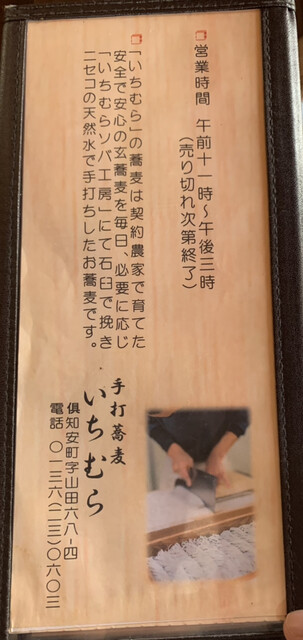 営業時間　午前十一時～午後三時
（売り切れ次第終了）
「いちむら」の蕎麦は契約農家で育てた
安全で安心の玄蕎麦を毎日、必要に応じ
「いちむらソバ工房」にて石臼で挽き
ニセコの天然水で手打ちしたお蕎麦です。
手打蕎麦
いちむら
倶知安町字山田六八-四
電話　〇一三六(二三)〇六〇三